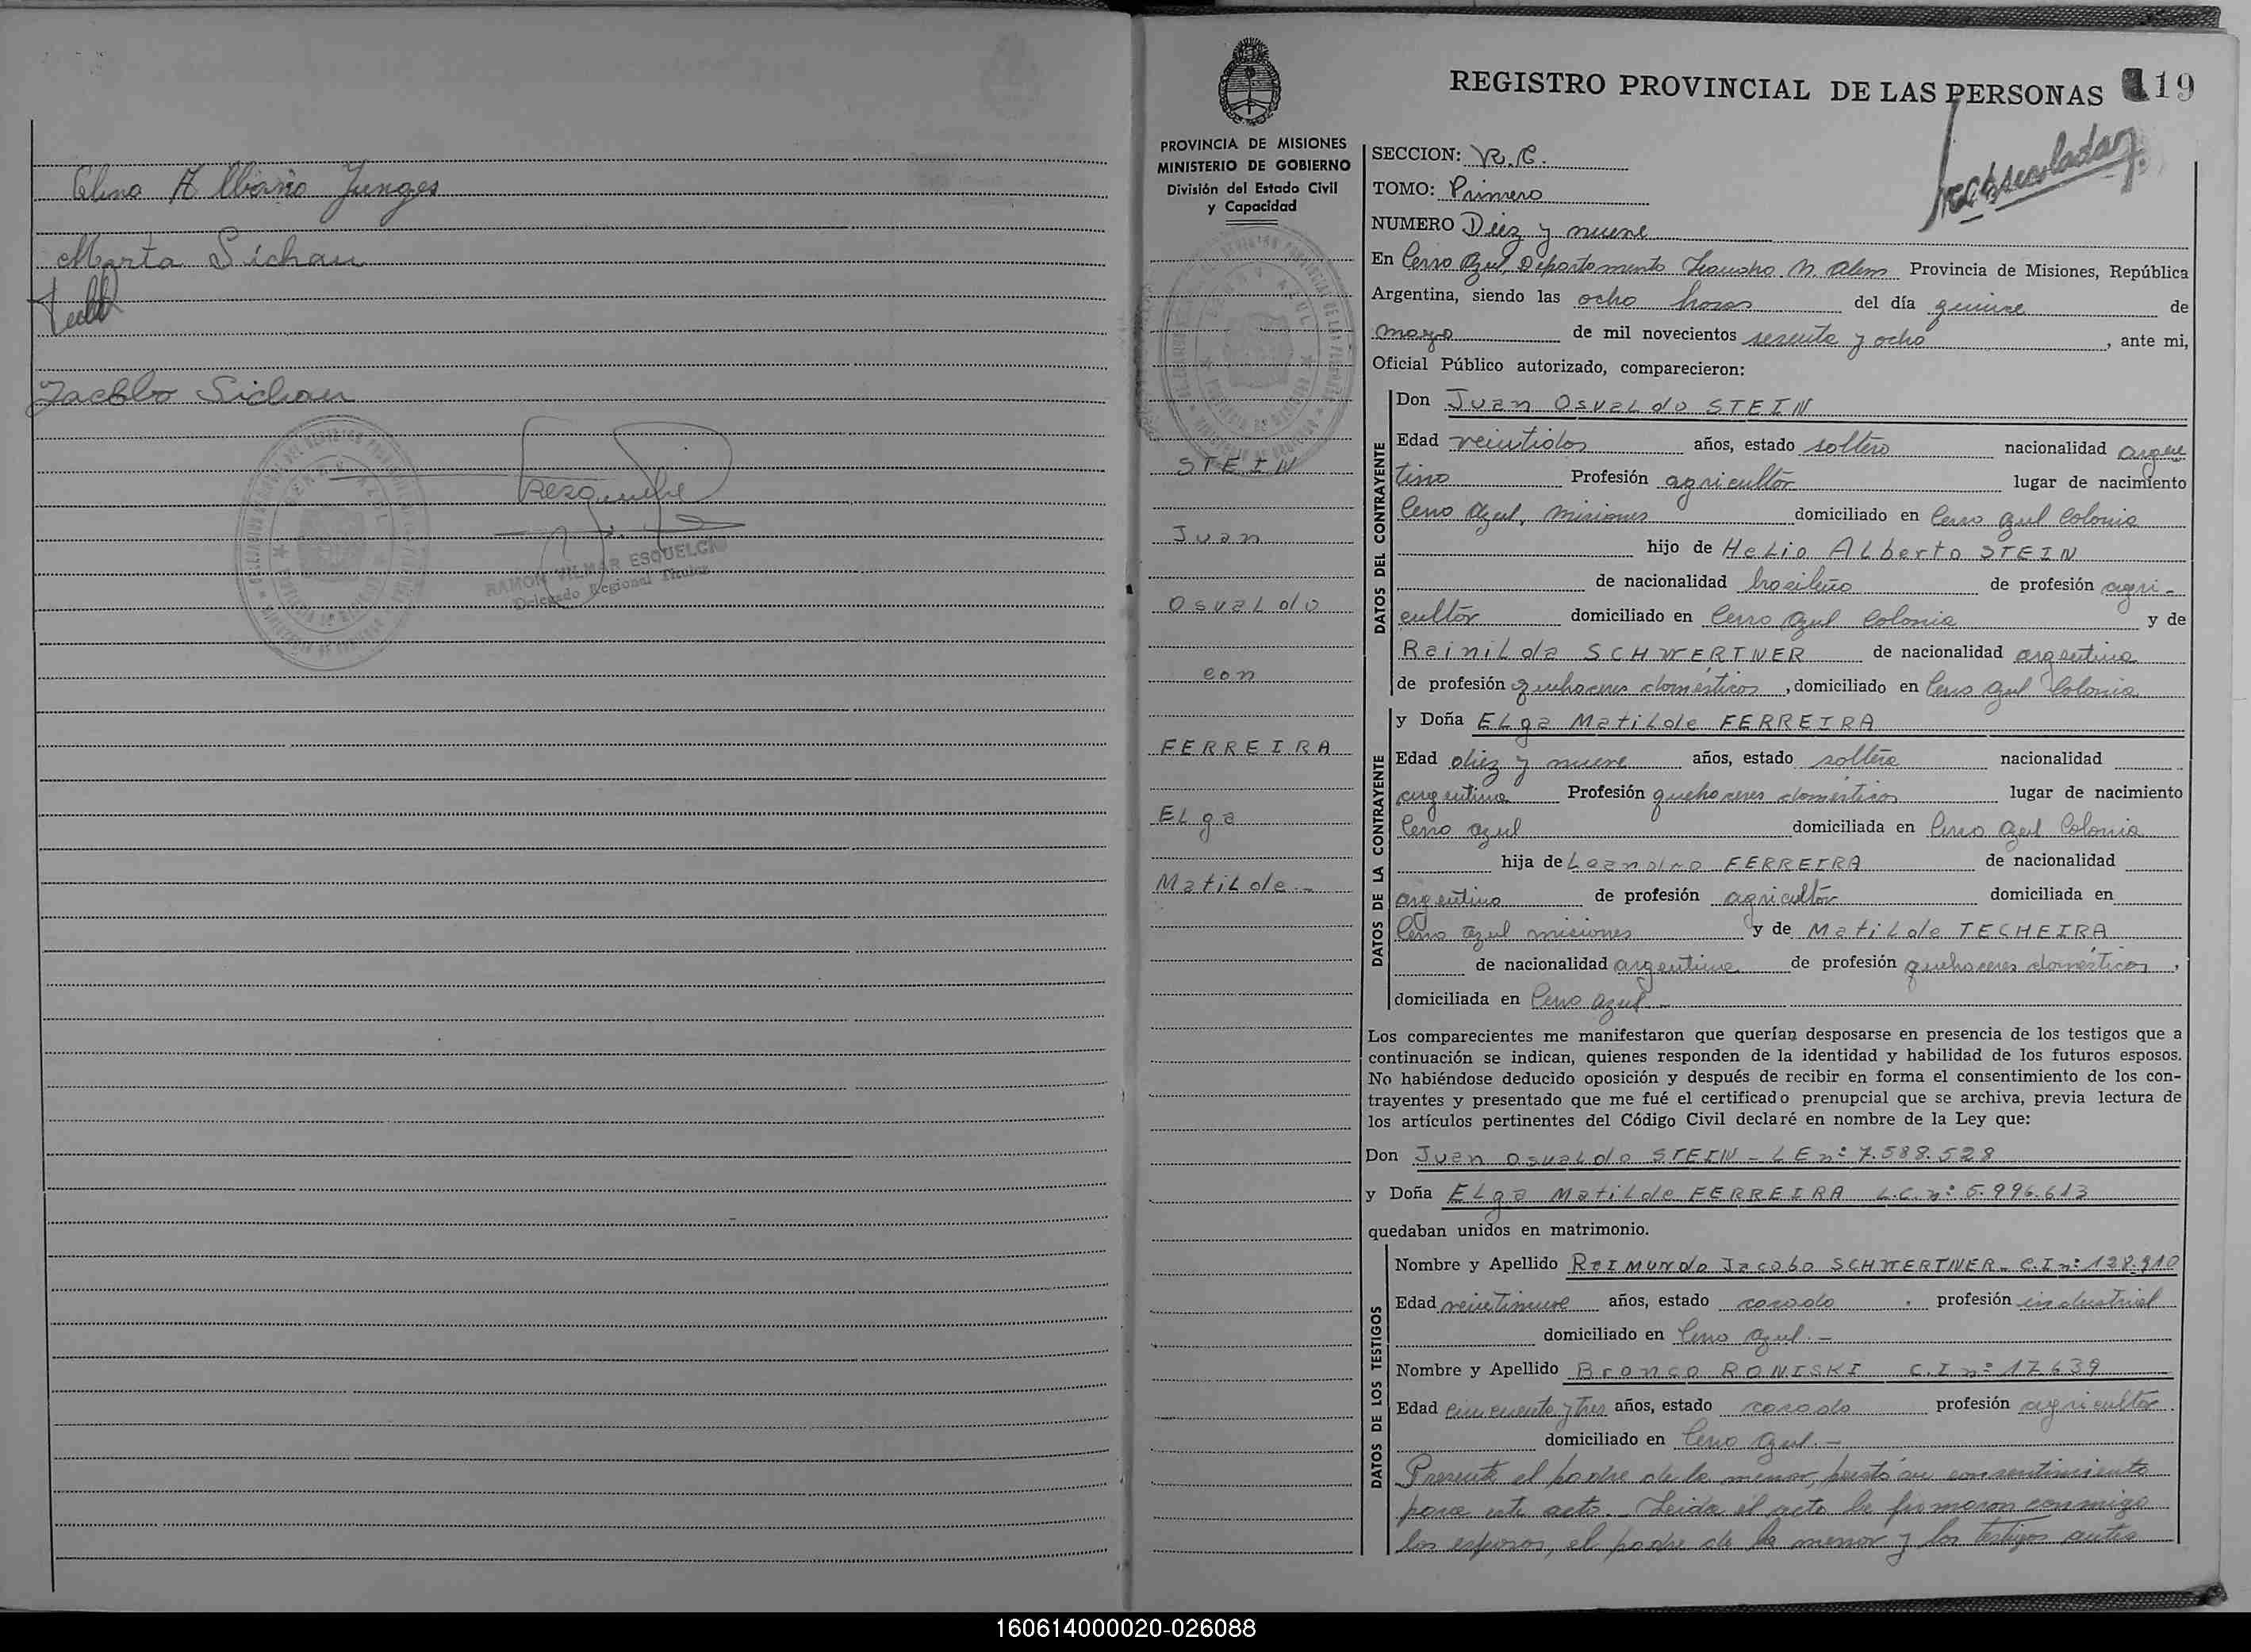 Elino Albano Junges
Marta Sichau
Jacoblo Sichau
RAMON VILMAR ESQUELCA
Delegado Regional Titular
REGISTRO PROVINCIAL DE LAS PERSONAS 19
PROVINCIA DE MISIONES
MINISTERIO DE GOBIERNO
División del Estado Civil
y Capacidad
STEIN
Juan
Osvaldo
con
FERREIRA
Elga
Matilde.-
SECCION: R.C.
TOMO: Primero
NUMERO Diez y nueve
En Cerro Azul, Departamento Leandro N. Alem Provincia de Misiones, República
Argentina, siendo las ocho horas del día quince de
marzo de mil novecientos sesenta y ocho, ante mi,
Oficial Público autorizado, comparecieron:
DATOS DEL CONTRAYENTE
Don Juan Osvaldo STEIN
Edad veintidos años, estado soltero nacionalidad argen
tino Profesión agricultor lugar de nacimiento
Cerro Azul, Misiones domiciliado en Cerro Azul Colonia
hijo de Helio Alberto STEIN
de nacionalidad brasileño de profesión agri-
cultor domiciliado en Cerro Azul Colonia y de
Rainilda SCHWERTNER de nacionalidad argentina
de profesión quehaceres domésticos, domiciliado en Cerro Azul Colonia
DATOS DE LA CONTRAYENTE
y Doña Elga Matilde FERREIRA
Edad diez y nueve años, estado soltera nacionalidad
argentina Profesión quehaceres domésticos lugar de nacimiento
Cerro Azul domiciliada en Cerro Azul Colonia
hija de Leandro FERREIRA de nacionalidad
argentino de profesión agricultor domiciliada en
Cerro Azul Misiones y de Matilde TECHEIRA
de nacionalidad argentina de profesión quehaceres domésticos,
domiciliada en Cerro Azul.-
Los comparecientes me manifestaron que querían desposarse en presencia de los testigos que a
continuación se indican, quienes responden de la identidad y habilidad de los futuros esposos.
No habiéndose deducido oposición y después de recibir en forma el consentimiento de los con-
trayentes y presentado que me fué el certificado prenupcial que se archiva, previa lectura de
los artículos pertinentes del Código Civil declaré en nombre de la Ley que:
Don Juan Osvaldo STEIN - LE nº 7.588.528
y Doña Elga Matilde FERREIRA L.C. nº 5.996.613
quedaban unidos en matrimonio.
DATOS DE LOS TESTIGOS
Nombre y Apellido Reimundo Jacobo SCHWERTNER - C.I nº 128.910
Edad veintinueve años, estado casado. profesión industrial
domiciliado en Cerro Azul.-
Nombre y Apellido Bronco RONISKI C.I nº 17.639
Edad cincuenta y tres años, estado casado profesión agricultor.
domiciliado en Cerro Azul.-
Presente el padre de la menor, prestó su consentimiento
para este acto.- Leida el acta la firmaron conmigo
los esposos, el padre de la menor y los testigos antes
160614000020-026088